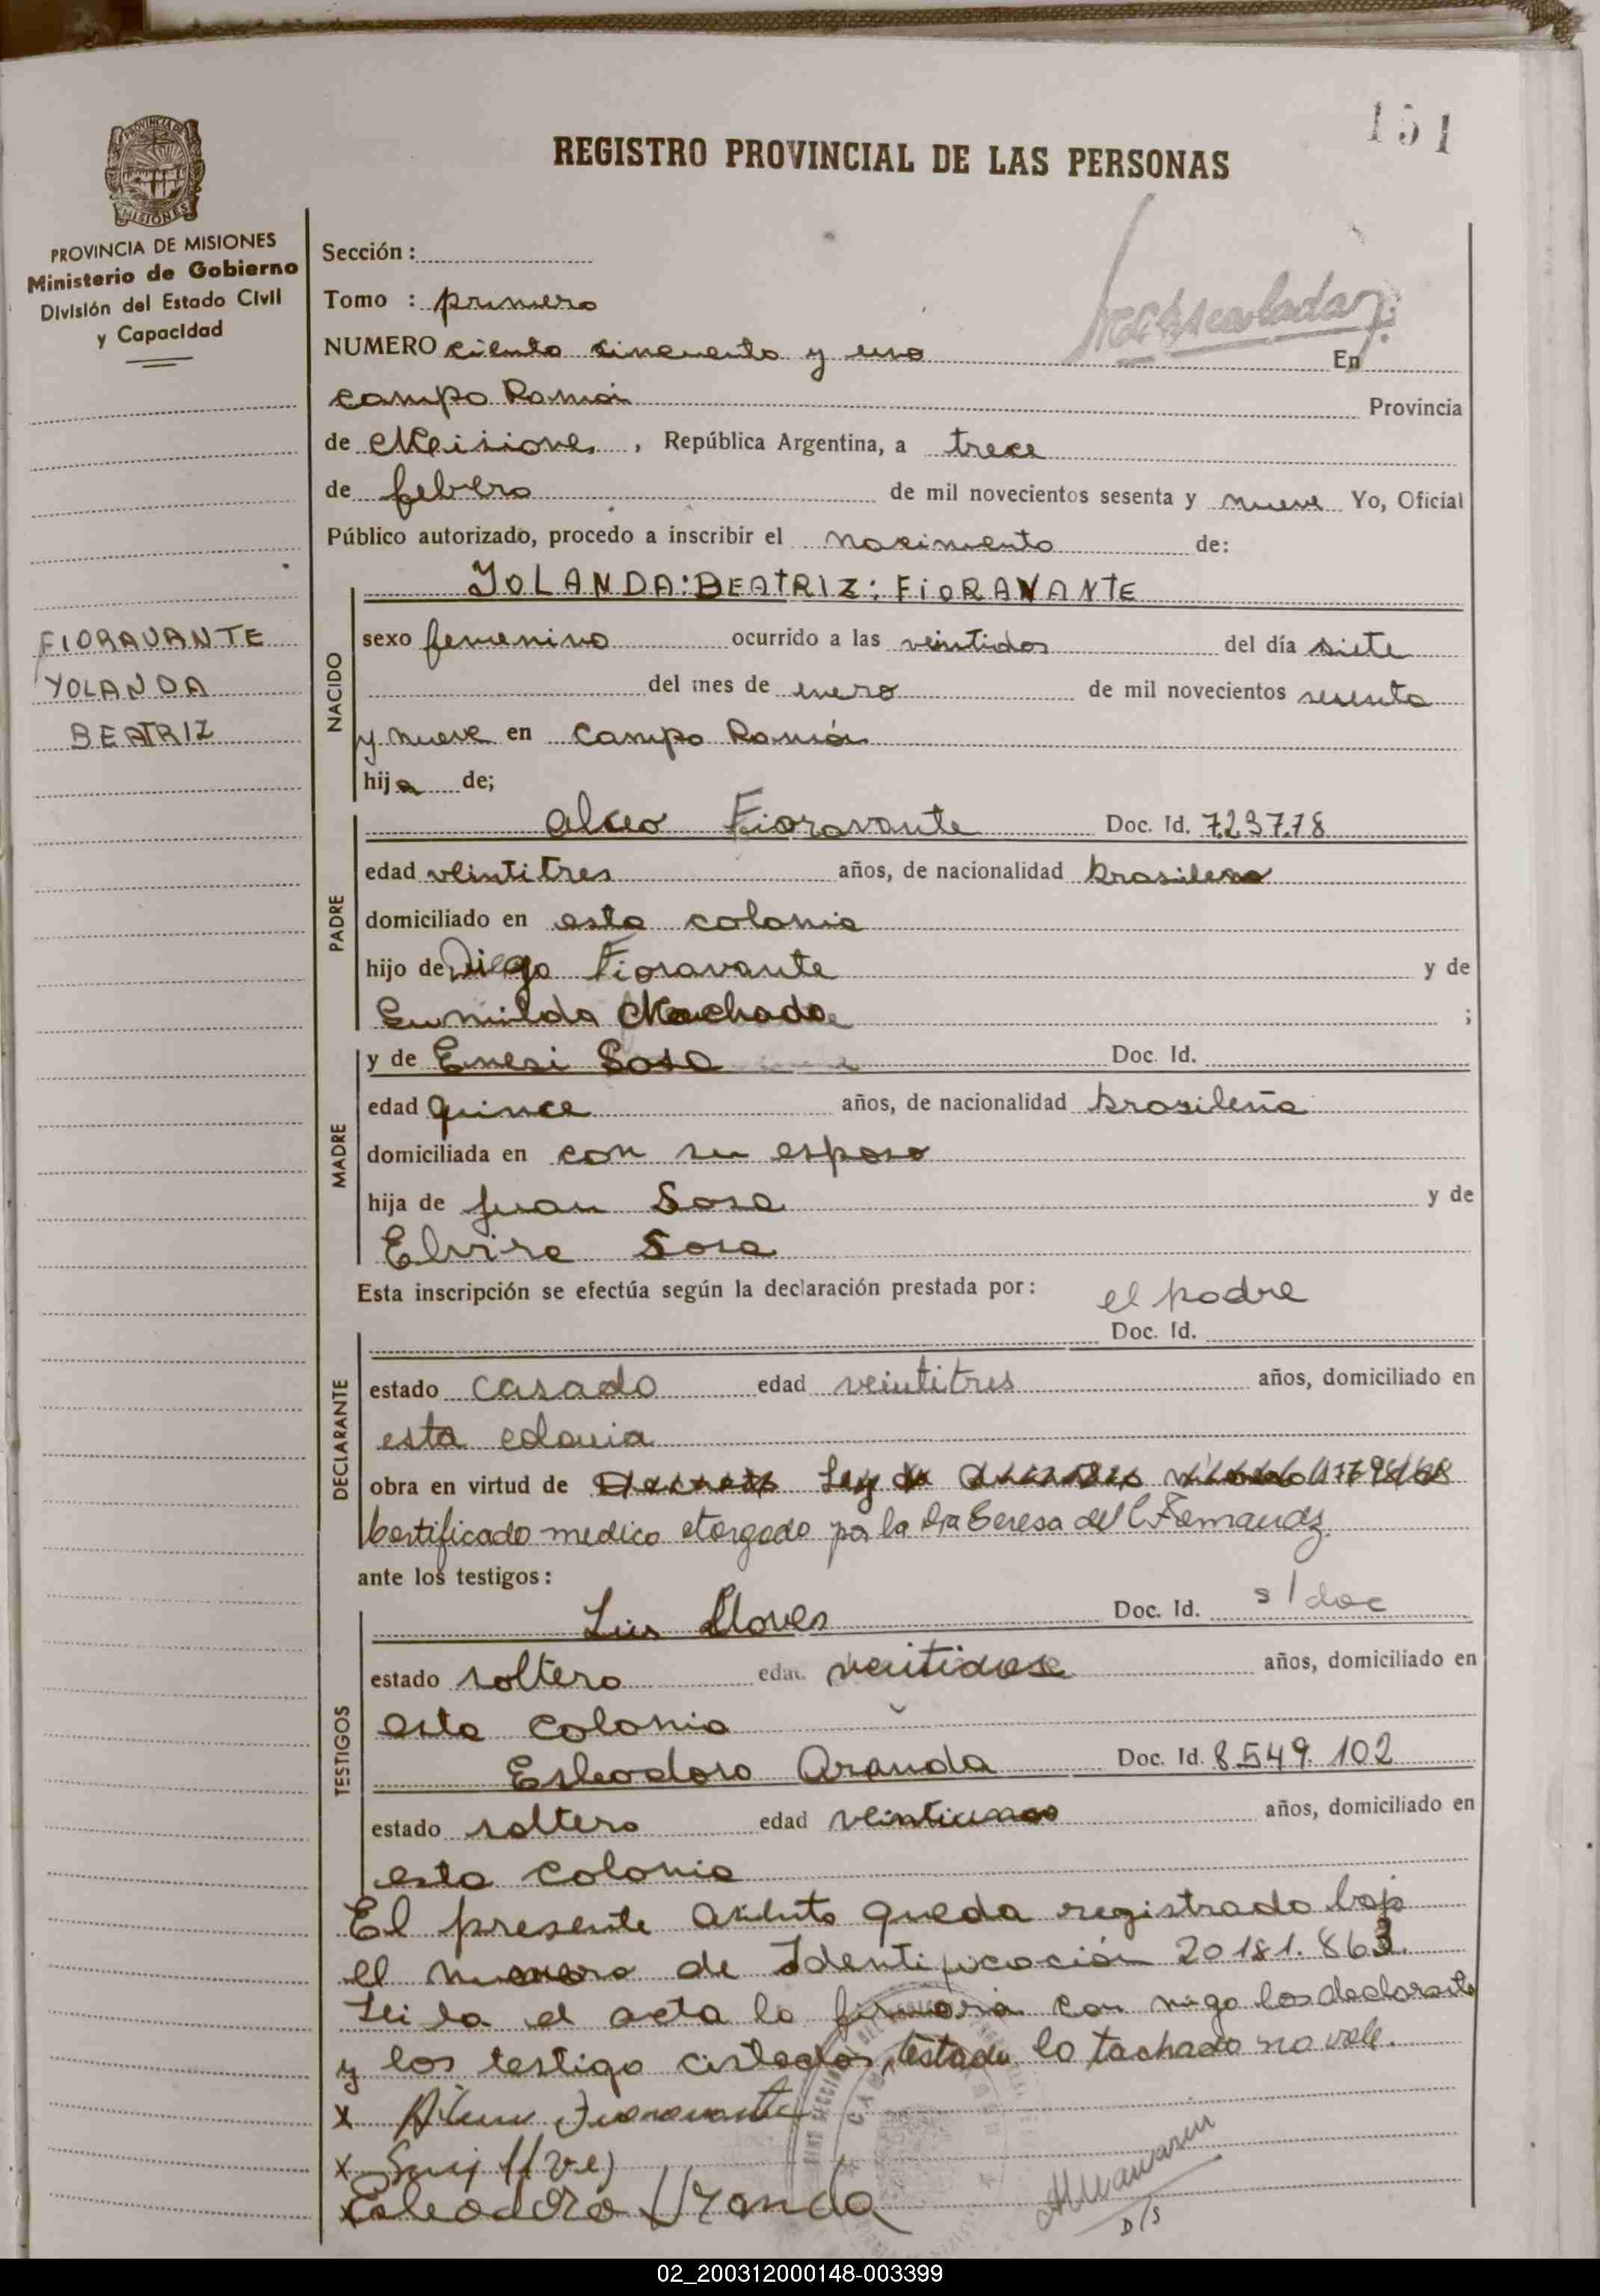 151
REGISTRO PROVINCIAL DE LAS PERSONAS
PROVINCIA DE MISIONES
PROVINCIA DE MISIONES
Ministerio de Gobierno
División del Estado Civil
y Capacidad
FIORAVANTE
YOLANDA
BEATRIZ
Sección :
Tomo : primero
NUMERO ciento cincuenta y uno En
campo Ramón Provincia
de Misiones, República Argentina, a trece
de febrero de mil novecientos sesenta y nueve Yo, Oficial
Público autorizado, procedo a inscribir el nacimiento de:
NACIDO
YOLANDA:BEATRIZ: FiORAVANTE
sexo femenino ocurrido a las veintidos del día siete
del mes de enero de mil novecientos sesenta
y nueve en Campo Ramón
hija de;
PADRE
Alceo Fioravante Doc. Id. 723778
edad veintitres años, de nacionalidad brasileno
domiciliado en esta colonia
hijo de Diego Fioravante y de
Machado ;
MADRE
y de Enesi Sosa Doc. Id.
edad quince años, de nacionalidad brasileña
domiciliada en con su esposo
hija de Juan Sosa y de
Elvira Sosa
Esta inscripción se efectúa según la declaración prestada por: el padre
DECLARANTE
Doc. Id.
estado casado edad veintitres años, domiciliado en
esta colonia
obra en virtud de Ley
Certificado medico otorgado por la Dra Teresa del C Fernandz
ante los testigos :
TESTIGOS
Luis Doc. Id. s/doc
estado soltero edad veitidos años, domiciliado en
esta colonia
Esleodoro Aranda Doc. Id. 8.549.102
estado soltero edad veintiuno años, domiciliado en
esta colonia
El presente queda registrado bajo
el numero de Identificación 20181.863.
Leida el acta la firmarán con migo los declarante
y los testigo , testado lo tachado no vale.
x Fioravante
x
x Esleodoro Aranda
D/S
02_200312000148-003399